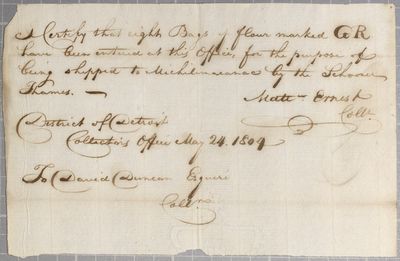 I Certify that eight Bags of flour marked GR
have been entered at this Office, for the purpose of
being shipped to Michilimacanac by the Schooner
Thames. —
Matt. Ernest
Collr.
District of Detroit
Collector's Office May 24. 1804
To David Duncan Esquire
Collr.